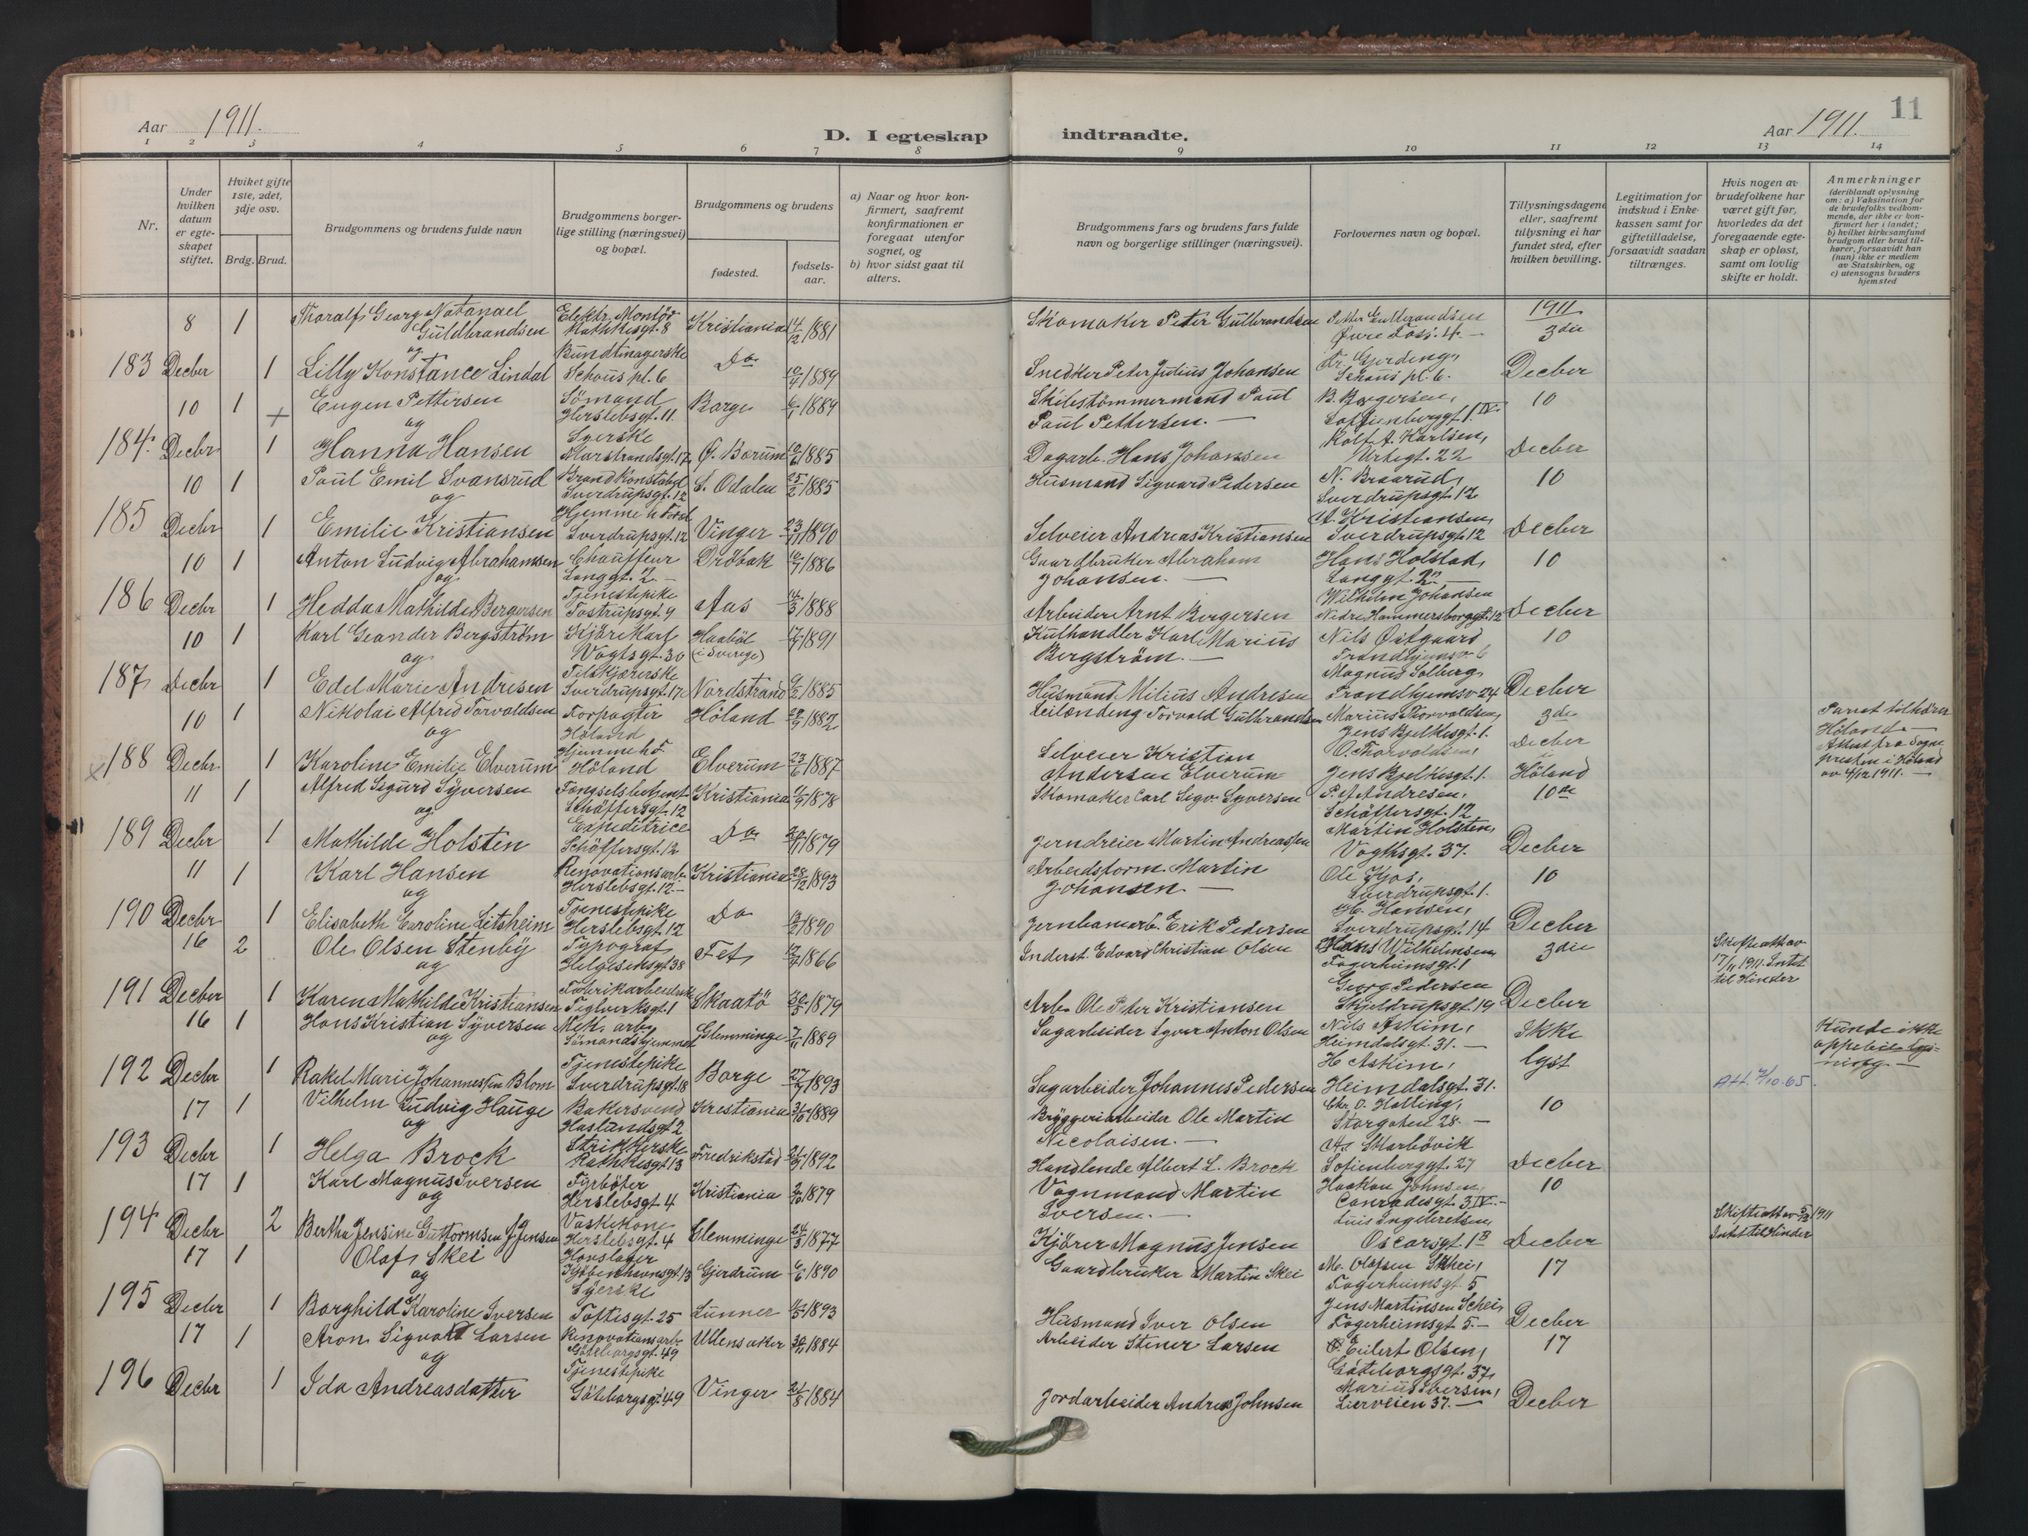 Aar 1911.
D. I egteskap
indtraadte.
Aar 1911.
11
1 2 3 4 5 6 7 8 9 10 11 12 13 14
Nr.
Under hvilken datum er egteskapet stiftet.
Hviket gifte 1ste, 2det, 3dje osv.
Brdg. Brud.
Brudgommens og brudens fulde navn
Brudgommens borgerlige stilling (næringsvei) og bopæl.
Brudgommens og brudens
fødested.
fødselsaar.
a) Naar og hvor konfirmert, saafremt konfirmationen er foregaat utenfor sognet, og
b) hvor sidst gaat til alters.
Brudgommens fars og brudens fars fulde navn og borgerlige stillinger (næringsvei).
Forlovernes navn og bopæl.
Tillysningsdagene eller, saafremt tillysning ei har fundet sted, efter hvilken bevilling.
Legitimation for indskud i Enkekassen samt for giftetilladelse, forsaavidt saadan tiltrænges.
Hvis nogen av brudefolkene har været gift før, hvorledes da det foregaaende egteskap er opløst, samt om lovlig skifte er holdt.
Anmerkninger
(deriblandt oplysning om: a) Vaksination for de brudefolks vedkommende, der ikke er konfirmert her i landet; b) hvilket kirkesamfund brudgom eller brud tilhører, forsaavidt han (hun) ikke er medlem av Statskirken, og c) utensogns bruders hjemsted
8 1 Thoralf Georg Natanael Guldbrandsen Elektr. Montör Rathkesgt. 8 Kristiania 1881 Skomaker Peter Gulbrandsen Petter Gulbrandsen Øvre Foss. 4. 1911 3die
og
183 Decbr 1 Lilly Konstance Lindal Bundtmagerske Schous pl. 6 Do 1889 Snedker Peter Julius Johansen Fr. Gjerding, Schous pl. 6. Decber
10 1 Eugen Pettersen Sömand Herslebsgt. 11 Borge 1884 Skibstömmermand Paul Paul Pettersen. B. Borgersen, Soffienberggt. 1 IV. 10
og
184. Decbr 1 Hanna Hansen Syerske Marstrandsgt. 17 Ø. Borum 1885 Dagarb. Hans Johansen Rolf A. Karlsen, Urtegt. 22 Decber
10 1 Paul Emil Svansrud Brandkonstabel Sverdrupsgt. 12 S. Odalen 25/2 1885 Husmand Sigvard Pedersen N. Braarud, Sverdrupsgt. 12 10
og
185 Decbr 1 Emilie Kristiansen Hjemme h Forel Sverdrupsgt. 12 Vinger 1890 Selveier Andreas Kristiansen A. Kristiansen, Sverdrupsgt. 12 Decber
10 1 Anton Ludvig Abrahamsen Chauffeur Langgt. 2. Dröbak 1886 Gaardbruker Abraham Johansen. Hans Holstad, Langgt. 2. 10
og
186 Decbr 1 Hedda Mathilde Bergersen Tjenestepike Tostrupsgt. 9 Aas 14/3 1888 Arbeider Arnt Bergersen Wilhelm Johansen Nedre Hammersborggt. 12 Decber
10 1 Karl Geander Bergström Kjörekarl Vogtsgt. 30 Haaböl (i Sverige) 1891 Kulhandler Karl Marius Bergström. Nils Östgaard Trondhjemsv. 6 10
og
187 Decbr 1 Edel Marie Andresen Tilskjærerske Sverdrupsgt. 17 Nordstrand 1885 Husmand Milius Andresen Magnus Solberg, Trondhjemsv. 24 Decber
10 1 Nikolai Alfred Torvaldsen Forpagter Höland Höland 1882 Leilænding Torvald Gulbrandsen Marius Thorvaldsen, Jens Bjelkesgt. 1. 3die Parret tilhörer Höland Attest fra Sognepresten i Höland av 4/12 1911.
og
188 Decbr. 1 Karoline Emilie Elverum Hjemme h.F. Höland Elverum 23/6 1887 Selveier Kristian Andersen Elverum O. Thorvaldsen, Jens Bjelkesgt. 1. Decber Höland
11 1 Alfred Sigurd Syversen Fængselsbetjent Schöffersgt. 12 Kristiania 1878 Skomaker Carl Sigv. Syversen P. A. Andresen, Schöffersgt. 12 10de
og
189 Decbr 1 Mathilde Holsten Expeditrice Schöffersgt. 12 Do 1879 Jerndreier Martin Andreassen Martin Holsten, Vogthsgt. 37. Decber
11 1 Karl Hansen Renovationsarb. Herslebsgt. 12 Kristiania 28/12 1893 Arbeidsform. Martin Johansen. Ole Kjos, Sverdrupsgt. 1. 10
og
190 Decbr 1 Elisabeth Caroline Leitsheim Tjenestepike Herslebsgt. 12 Do 1890 Jernbanearb. Erik Pedersen H. Hansen, Sverdrupsgt. 14 Decber
16 2 Ole Olsen Stenby Typograf Helgesensgt 38 Fet 1866 Inderst. Edvard Christian Olsen Hans Wilhelmsen, Fagerheimsgt. 1 3die Skifteatt av 17/11 1911. Intet til Hinder
og
191 Decber 1 Karen Mathilde Kristiansen Fabrikarbeiderske Teglverksgt. 1 Skaatö 1879 Arb. Ole Peter Kristiansen Georg Pedersen Skjeldrupsgt. 19 Decber
16 1 Hans Kristian Syversen Mek. arb. Sömandshjemmet Glemminge 7/11 1889 Sagarbeider Syver Anton Olsen Nils Askim, Heimdalsgt. 31. Ikke Kunde ikke oppebie lysning.
og
192 Decbr 1 Rakel Marie Johannessen Blom Tjenestepike Sverdrupsgt. 18 Borge 1893 Sagarbeider Johannes Pedersen H Askim, Heimdalsgt. 31. lyst Att. 7/10.65.
17 1 Vilhelm Ludvig Hauge Bakersvend Haslandsgt 2 Kristiania 1889 Bryggeriarbeider Ole Martin Nicolaisen. Chr. O. Holling, Storgaten 28. 10
og
193 Decbr 1 Helga Brock Strikkerske Rathkesgt. 13 Fredrikstad 1892 Handlende Albert L. Brock A. Skarbövik Sofienberggt. 27 Decber
17 1 Karl Magnus Iversen Fyrböter Herslebsgt. 4 Kristiania 1879 Vognmand Martin Iversen. Haakon Johnsen, Conradisgt. 3 IV. 10
og
194 Decbr 2 Bertha Jensine Guttormsen f. Jensen Vaskekone Herslebsgt. 4 Glemminge 24/3 1877 Kjörer Magnus Jensen Luis Ingebretsen, Oscarsgt. 1B Decber Skifteatt av 1911 Intet til Hinder
17 1 Olaf Skei Hovslager Kjöbenhavnsgt. 13 Gjerdrum 1890 Gaardbruker Martin Skei M. Olafsen Skhei, Fagerheimsgt. 5 17
og
195 Decbr 1 Borghild Karoline Iversen Syerske Toftesgt. 25 Lunner 1893 Husmand Iver Olsen Jens Martinsen Schei, Fagerheimsgt. 5. Decber
17 1 Aron Sigvald Larsen Renovationsarb. Göteborgsgt. 49 Ullensaker 1884 Arbeider Stener Larsen Eilert Olsen, Göteborgsgt. 37, 17
og
196 Decbr 1 Ida Andreasdatter Tjenestepike Göteborgsgt. 49 Vinger 1884 Jordarbeider Andreas Johnsen Marius Iversen, Lierveien 37. Decber